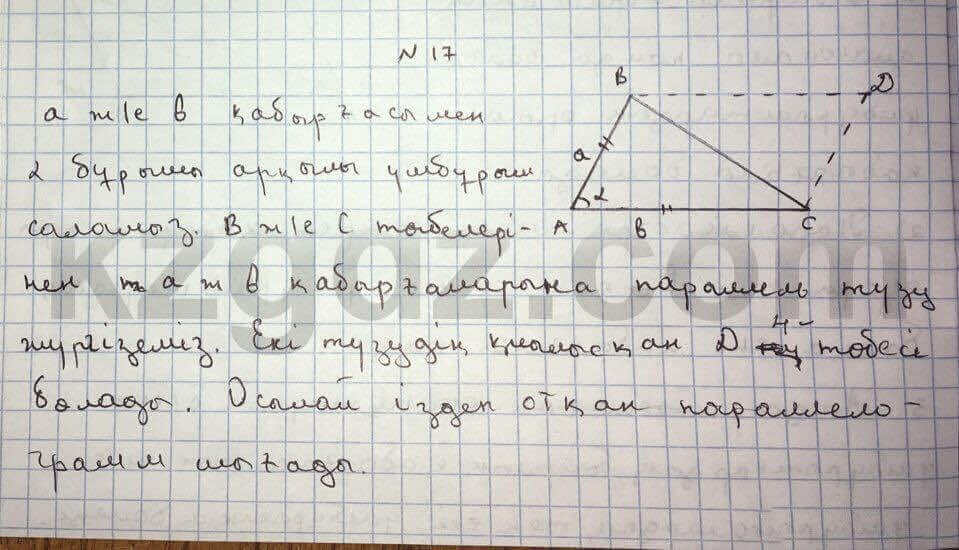 N 17
а ж/е в қабырғасымен
α бұрышы арқылы үшбұрыш
саламыз. В ж/е С төбелері-
нен а ж в қабырғаларына параллель түзу
жүргіземіз. Екі түзудің қиылысқан D 4-
төбесі
болады. Осылай іздеп отқан параллело-
грамм шығады.
B
D
a
α
A
в
C
kzgdz.com